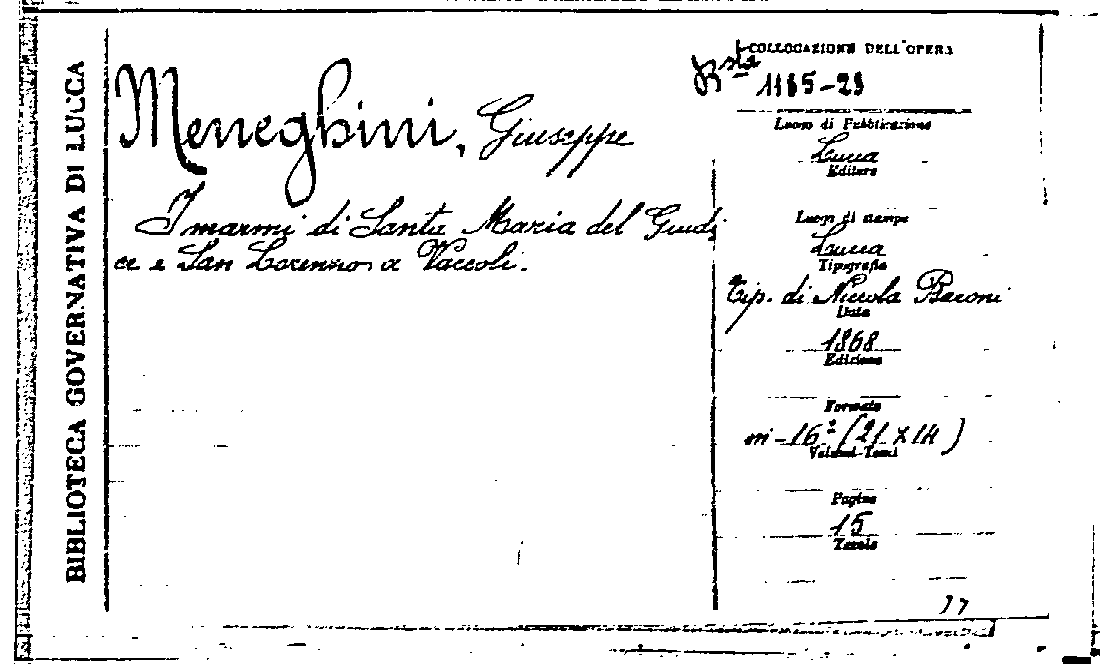 BIBLIOTECA GOVERNATIVA DI LUCCA
Meneghini, Giuseppe
I marmi di Santa Maria del Giudi
ce e San Lorenzo a Vaccoli.
COLLOCAZIONE DELL'OPERA
Bsta 1165-23
Luogo di Pubblicazione
Lucca
Editore
Luogo di stampa
Lucca
Tipografia
Tip. di Niccola Baroni
Data
1868
Edizione
Formato
in-16º (21 x 14)
Volumi-Tomi
Pagine
15
Tavole